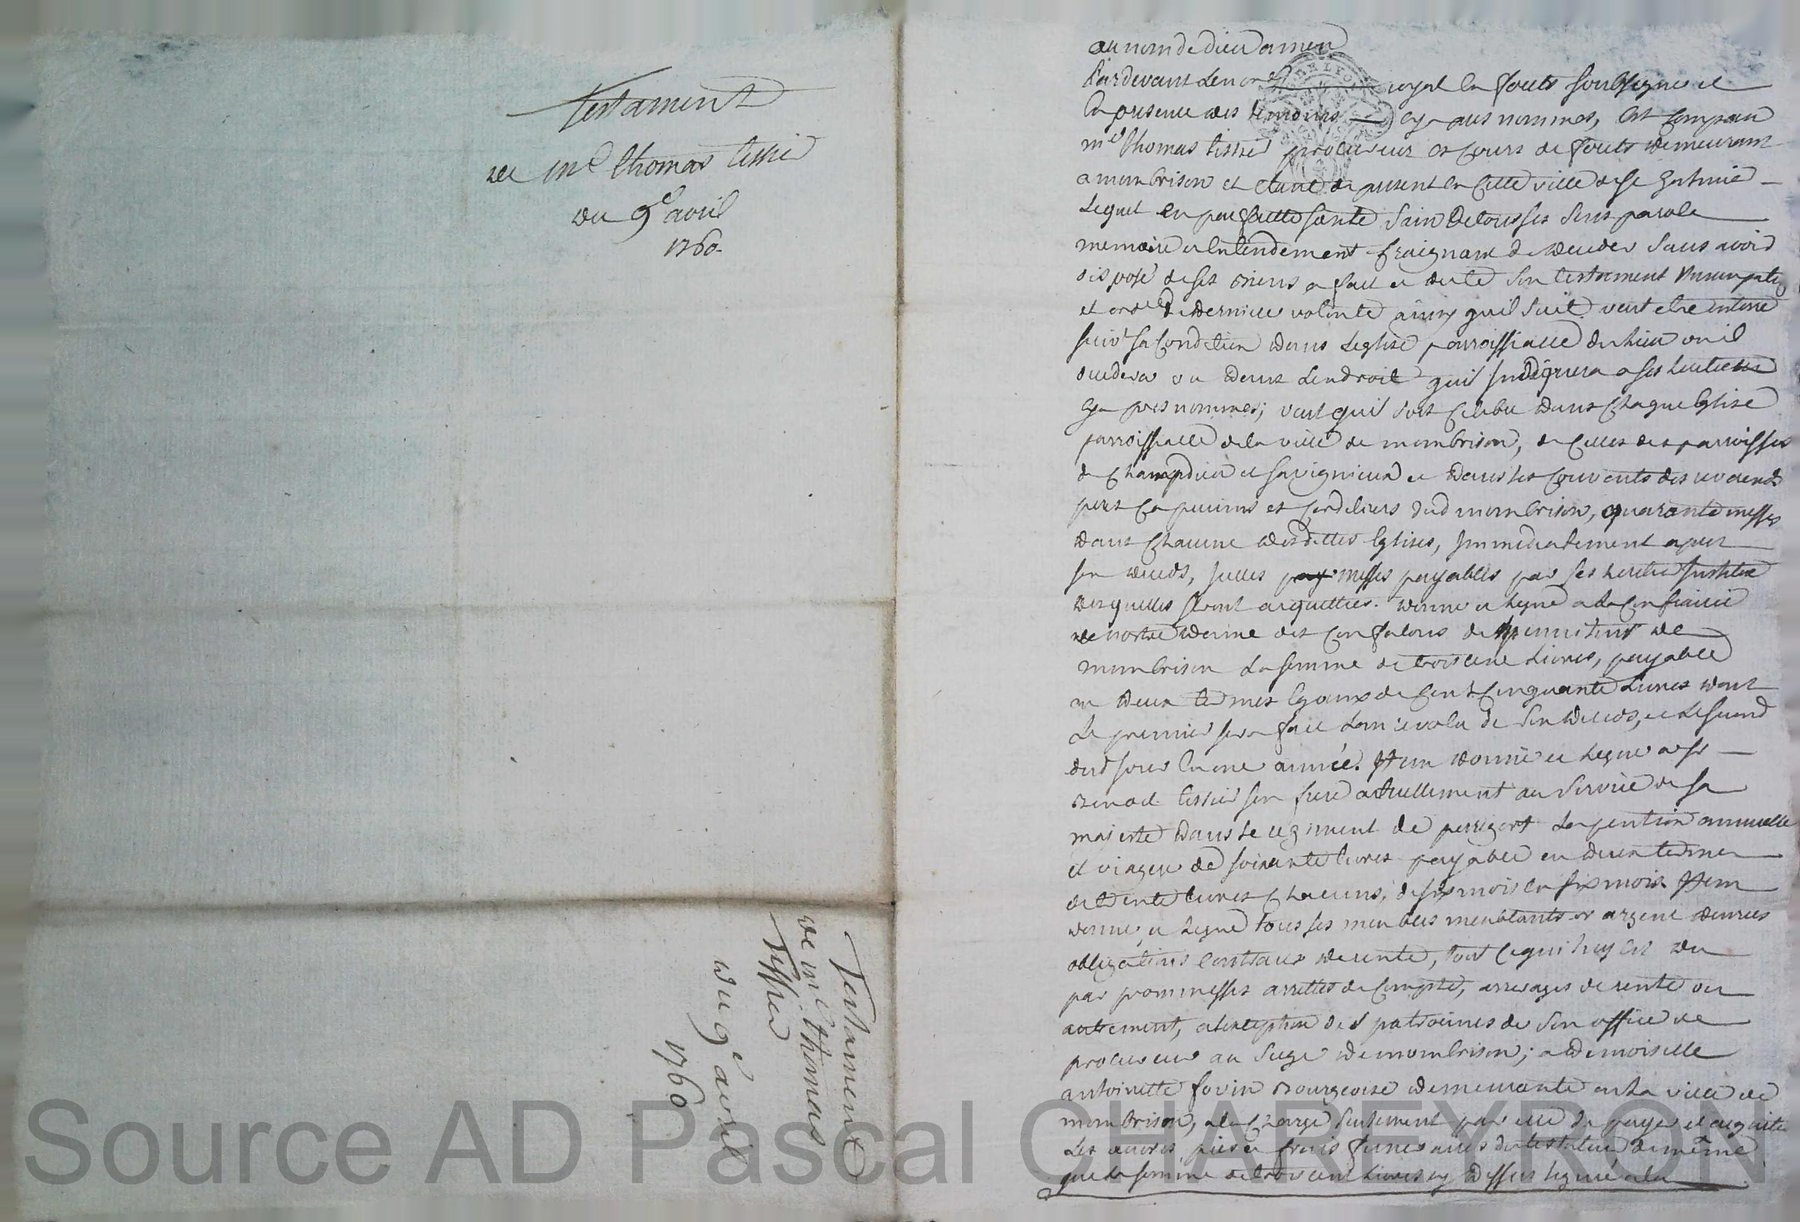 Testament
de me thomas tissié
du 9e avril
1760
Testament
de me thomas
Tissier
du 9e avril
1760
au nom de dieu amen
Pardevant Le no.re royal en forets soubsigné et
En presence des temoins cy apres nommes, Est comparu
me Thomas tissié procureur es cours de forets demeurant
a mombrison et etant de present en Cette ville de St
Lequel en parfaitte santé sain de tous ses sens parole
memoire et entendement craignant de deceder sans avoir
disposé de ses biens a fait et dicté son testament nuncupatif
et ord.ce de derniere volonté ainsy quil suit veut etre enterré
suiv.t sa Condition dans Leglise parroissialle du Lieu ou il
decedera ou dans Lendroit quil Indiquera a ses heritiers
cy apres nommes; veut quil soit Celebré dans Chaque Eglise
parroissialle de la ville de mombrison, de Celles des parroisses
de Champdieu et savignieux et dans les Couvents des reverends
peres Capucins et Cordeliers dud mombrison, quarante messes
dans Chacune desdittes Eglises, Immediatement apres
son deceds, Icelles messes payables par ses heritie Institué
desquelles seront acquittées. donne et Legue a la Confrairie
de nostre dame des Confalons de penitens de
mombrison La somme de trois cent Livres, payable
en deux termes Egaux de Cent Cinquante Livres dont
Le premier sera fait Lannée evolu de son deceds, et Le second
dud jour en une année. Item donne et Legue a sr
Benoit tissié son frere actuellement au service de sa
majesté dans le regiment de perrigort La pention annuelle
et viagere de soixante livres payable en deux termes
de trente livres Chacuns, de six mois en six mois Item
donne et Legue tous ses meubles meublants or argent denrées
obligations Contraux de rente, tout Ce qui luy est du
par prommesses arrettés de Compte, arrerages de rente ou
autrement, a lexeption des patrocines de son office de
procureur au siege de mombrison; a demoiselle
antoinette forin Bourgeoise demeurante en La ville de
mombrison, a la Charge seulement par elle de payer et acquitter
Les œuvres pies et frais funeraires du testateur de même
que La somme de trois cent Livres cy dessus leguée a la
Source AD Pascal CHAREYRON